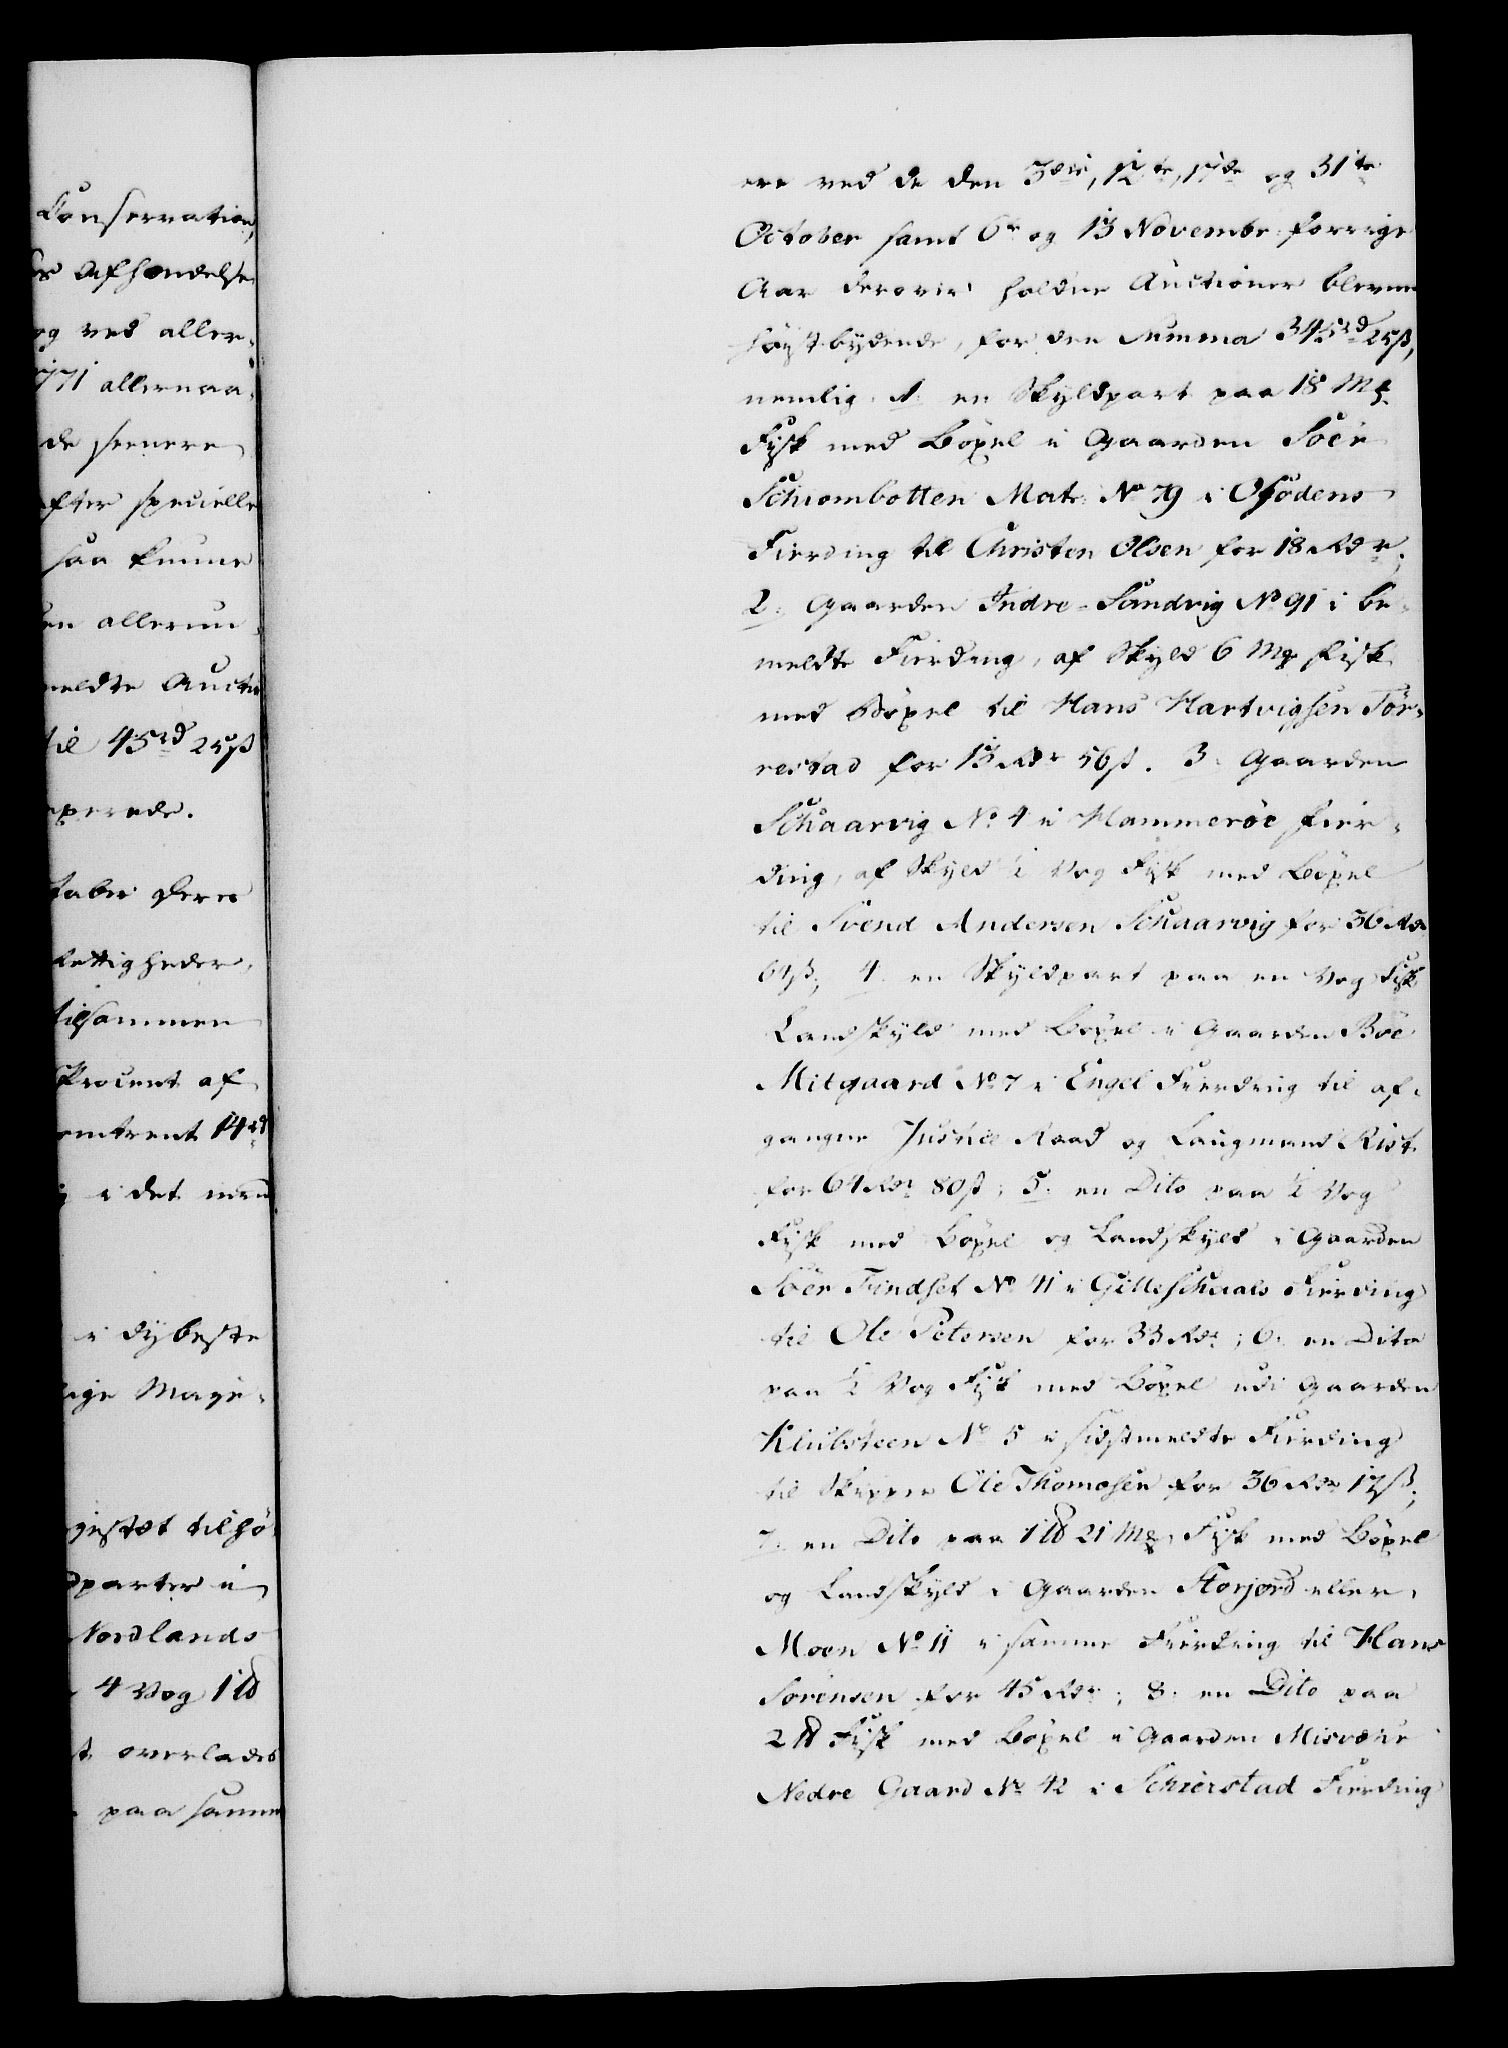 Conservation,
Afhændelse
og ved aller-
1771 allernaa-
de seenere
efter specielle
saa kunne
en allerun-
meldte Auctio
til 45rd 25ß
taber deres
Rettigheder,
tilsammen
Procent af
omtrent 14rd
i det mind
i dybeste
lige Maye-
jestæt tilhö-
dparter i
Nordlands
4 Vog 1 ℔
overlades
paa samme
ere ved de den 3die, 12te, 17de og 31te
October samt 6te og 13 Novembr forrige
Aar derover holdne Auctioner blevne
höystbydende, for den Summa 345rd 25ß,
nemlig. 1. en Skyldpart paa 18 Mk
Fisk med Böxel i Gaarden Söer
Schiombotten Matr. No 79 i Ofödens
Fierding til Christen Olsen for 18 Rdr;
2. Gaarden Indre-Sandvig No 91 i be-
meldte Fierding, af Skyld 6 Mk Fisk
med Böxel til Hans Hartvigsen Tör-
restad for 13 Rdr 56ß. 3. Gaarden
Schaarvig No 4 i Hammeröe Fier-
ding, af Skyld ½ Vog Fisk med Böxel
til Svend Andersen Schaarvig for 36 Rdr
64ß; 4. en Skyldpart paa en Vog Fisk
Landskyld med Böxel i Gaarden Böe
Mitgaard No 7 i Engel Fierding til af-
gangne Justice Raad og Laugmand Rist
for 64 Rdr 80ß; 5. en Dito paa ½ Vog
Fisk med Böxel og Landskyld i Gaarden
Söer Findset No 41 i Gilleschaals Fierding
til Ole Petersen for 33 Rdr; 6. en Dito
paa ½ Vog Fisk med Böxel udi Gaarden
Klubsteen No 5 i sidstmeldte Fierding
til Skipper Ole Thomesen for 36 Rdr 17ß;
7. en Dito paa 1 ℔ 21 Mk Fisk med Böxel
og Landskyld i Gaarden Storjord eller
Moen No 11 i samme Fierding til Hans
Sörensen for 45 Rdr; 8. en Dito paa
2 ℔ Fisk med Böxel i Gaarden Misvær
Nedre Gaard No 42 i Schierstad Fierding